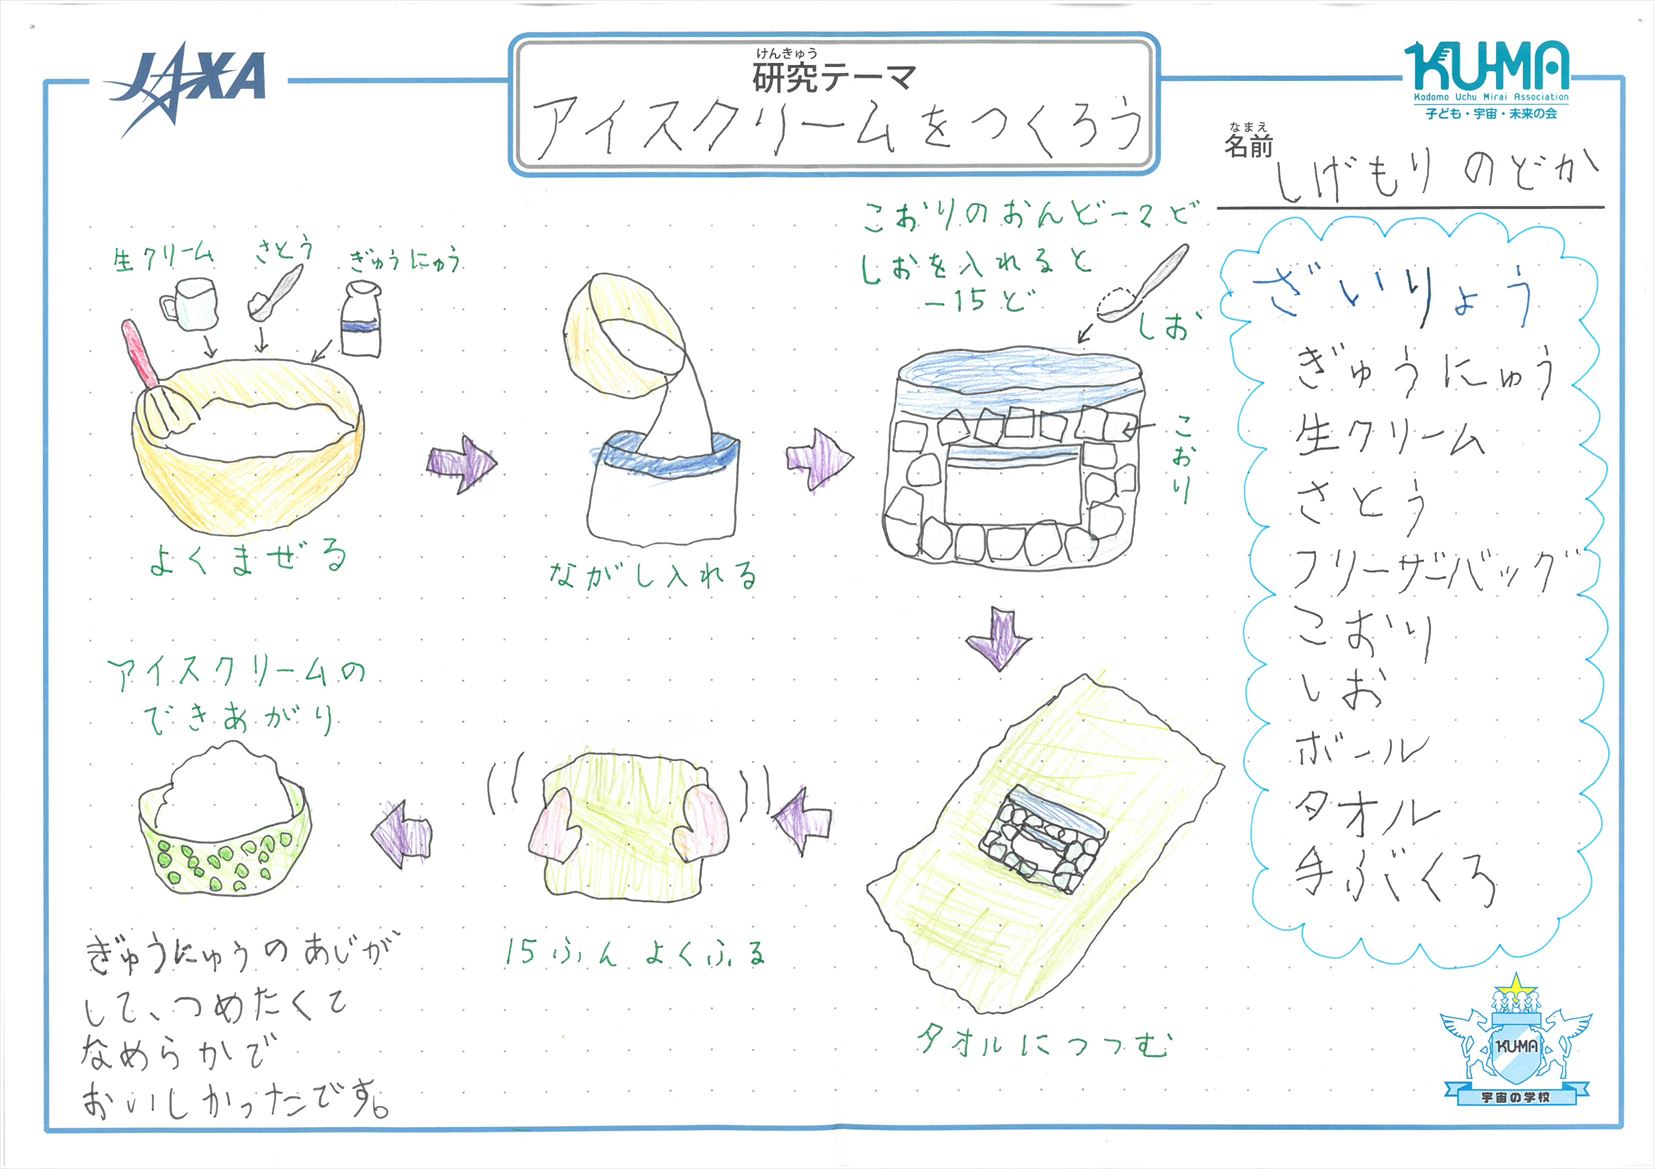 JAXA
けんきゅう
研究テーマ
アイスクリームをつくろう
KU-MA
Kodomo Uchu Mirai Association
子ども・宇宙・未来の会
なまえ
名前
しげもり のどか
生クリーム
さとう
ぎゅうにゅう
よくまぜる
ながし入れる
こおりのおんど-2ど
しおを入れると
-15ど
しお
こおり
タオルにつつむ
15ふん よくふる
アイスクリームの
できあがり
ぎゅうにゅうのあじが
して、つめたくて
なめらかで
おいしかったです。
ざいりょう
ぎゅうにゅう
生クリーム
さとう
フリーザーバッグ
こおり
しお
ボール
タオル
手ぶくろ
KUMA
宇宙の学校